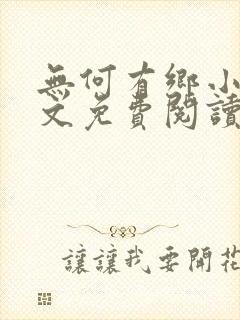 無何有鄉小
文免費閱讀
讓讓我要開花